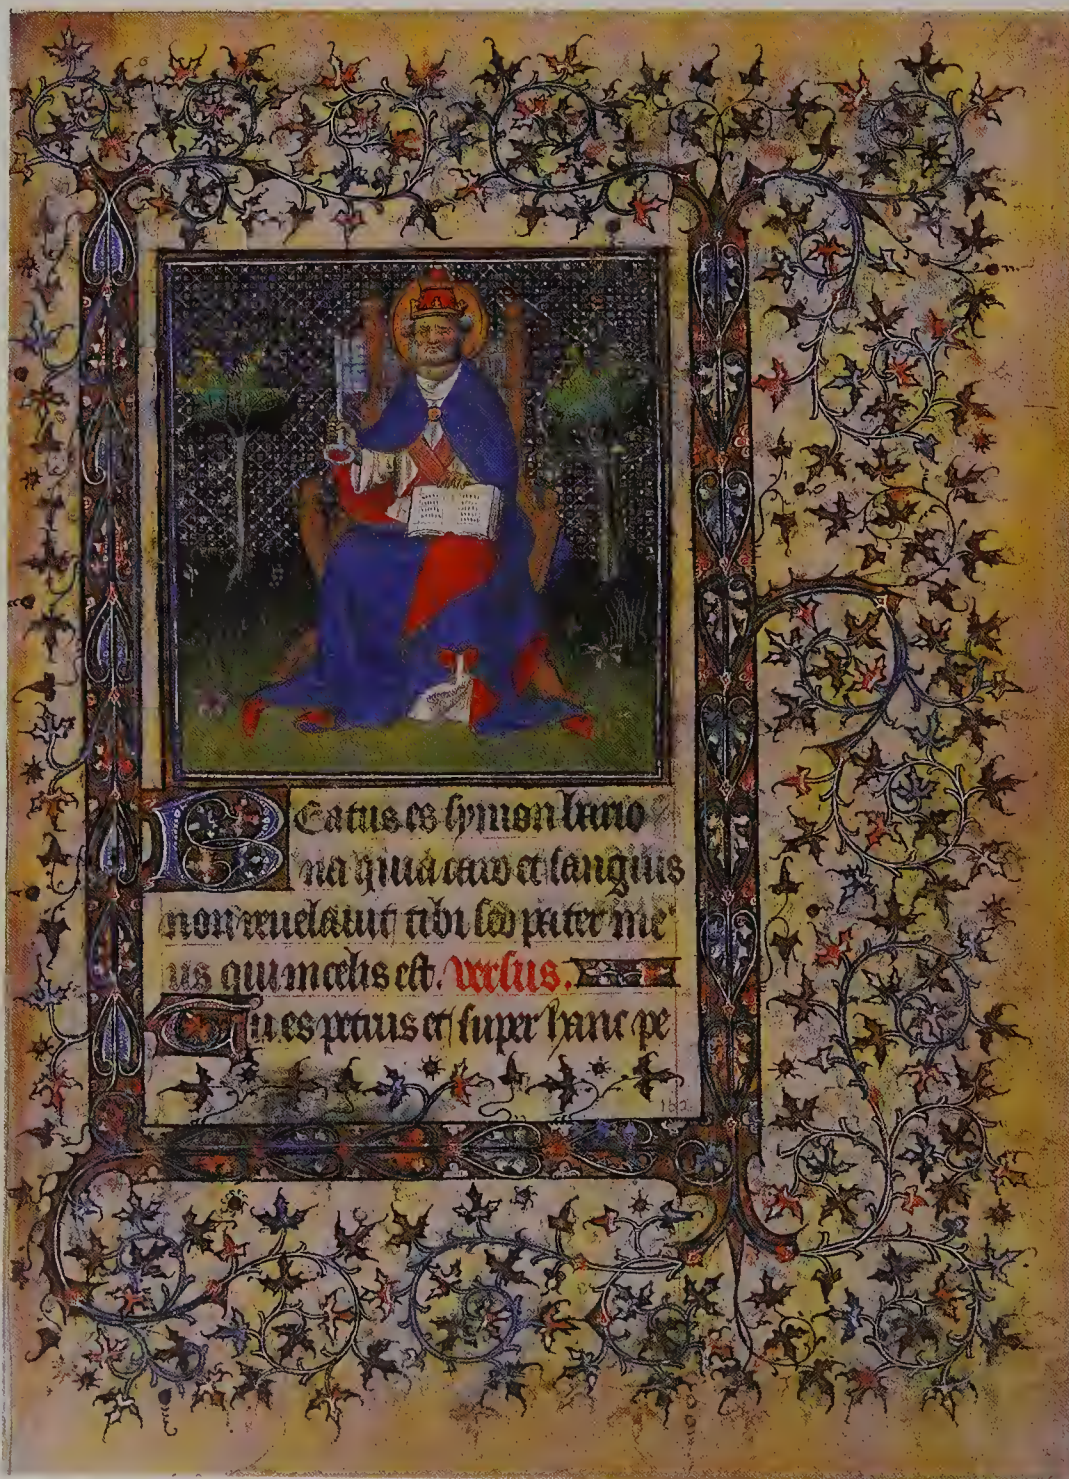 Beatus es symon bario
na quia caro et sanguis
non reuelauit tibi sed pater me
us qui in celis est. Versus.
Tu es petrus et super hanc pe
162